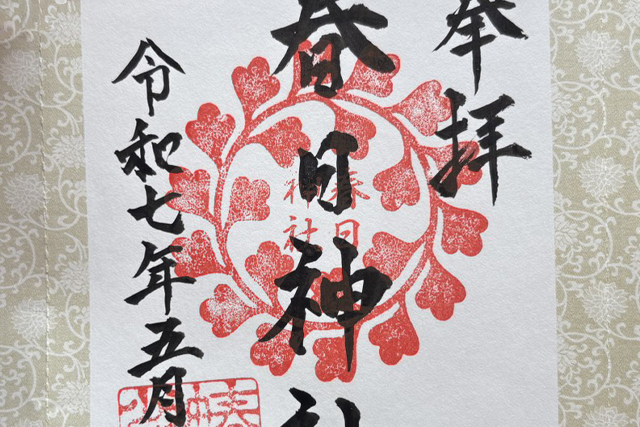 奉拝
春日神社
春日
神社
令和七年五月